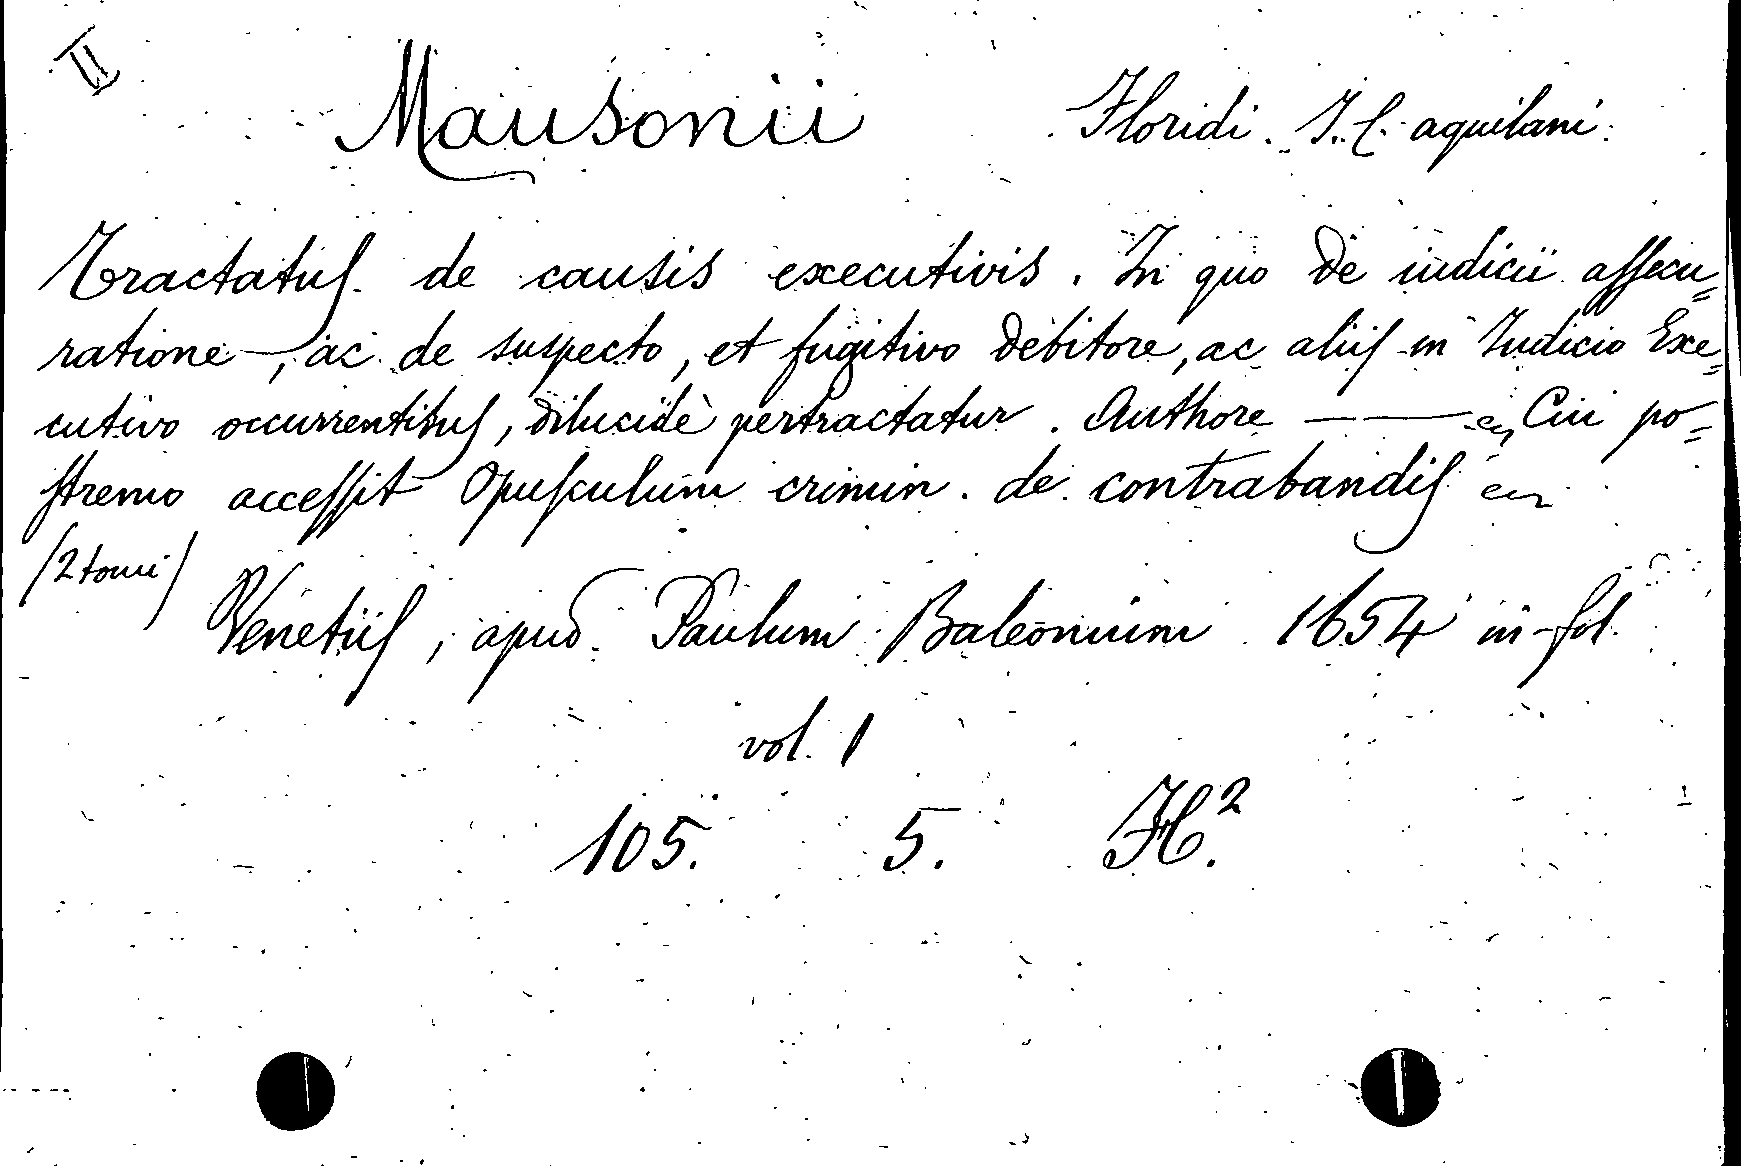 II
Mausonii Floridi. I. C. aquilani.
Tractatus de causis executivis. In quo de iudicii assecu=
ratione, ac de suspecto, et fugitivo debitore, ac aliis in Iudicio Exe=
cutivo occurrentibus, dilucidè pertractatur. Authore —— Cui po=
stremo accessit Opusculum crimin. de contrabandis
(2 tomi)
Venetiis, apud Paulum Baleonium 1654 in-fol.
vol. 1
105. 5. H.²